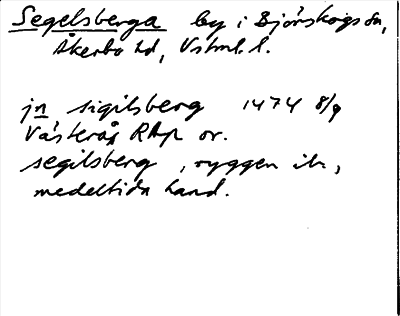 Segelsberga by i Björskogs sn,
Åkerbo hd, Vstml. l.
jn sigilsberg 1474 8/9
Västerås RAp or.
segilsberg, ryggen ib,
medeltida hand.